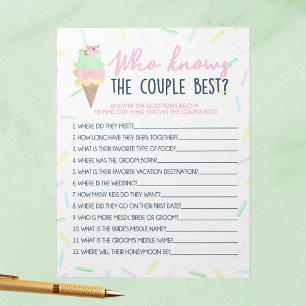 Who knows
THE COUPLE BEST?
ANSWER THE QUESTIONS BELOW
TO FIND OUT WHO KNOWS THE COUPLE BEST!
1. WHERE DID THEY MEET?
2. HOW LONG HAVE THEY BEEN TOGETHER?
3. WHAT IS THEIR FAVORITE TYPE OF FOOD?
4. WHERE WAS THE GROOM BORN?
5. WHAT IS THEIR FAVORITE VACATION DESTINATION?
6. WHERE IS THE WEDDING?
7. HOW MANY KIDS DO THEY WANT?
8. WHERE DID THEY GO ON THEIR FIRST DATE?
9. WHO IS MORE MESSY, BRIDE OR GROOM?
10. WHAT IS THE BRIDE'S MIDDLE NAME?
11. WHAT IS THE GROOM'S MIDDLE NAME?
12. WHERE WILL THEIR HONEYMOON BE?